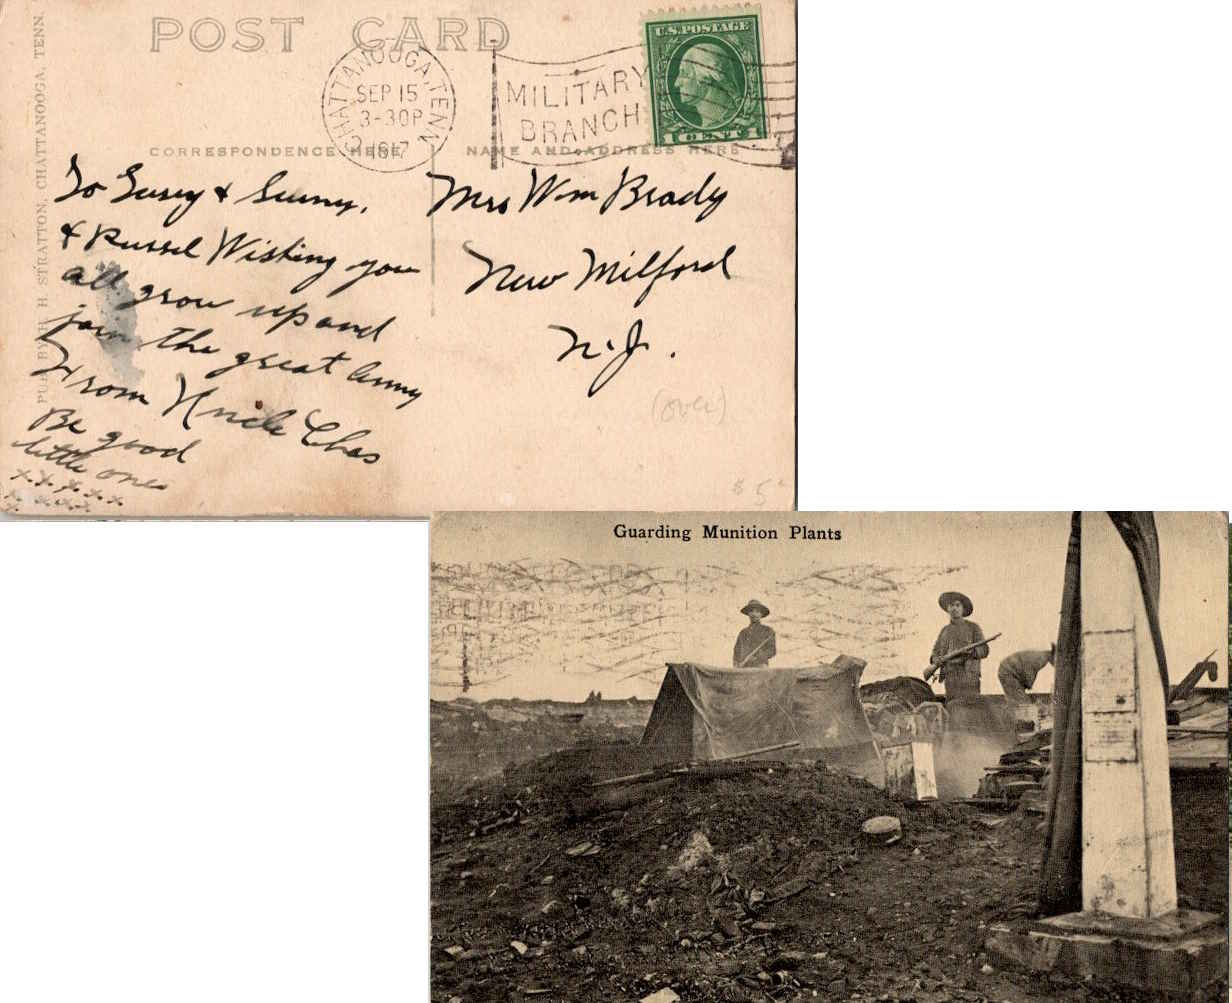 POST CARD
CHATTANOOGA, TENN.
SEP 15
3-30P
1917
MILITARY
BRANCH
U.S. POSTAGE
1 CENT 1
CORRESPONDENCE HERE
NAME AND ADDRESS HERE
PUB. BY H. H. STRATTON, CHATTANOOGA, TENN.
To Susey & Sunny,
& Russel Wishing you
all grow up and
join the great Army
From Uncle Chas
Be good
little ones
x x x x x
x x x x x
x
Mrs Wm Brady
New Milford
N.J.
(over)
$ 5
Guarding Munition Plants